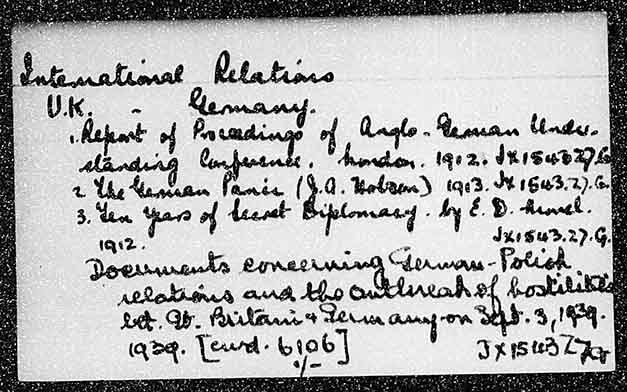 International Relations
U.K. - Germany.
1. Report of Proceedings of Anglo-German Under-
standing Conference. London. 1912. JX1543.Z7.G.
2. The German Panic (J.A. Hobson) 1913. JX1543.Z7.G.
3. Ten Years of Secret Diplomacy. by E. D. Morel.
1912. JX1543.Z7.G.
Documents concerning German-Polish
relations and the outbreak of hostilities
bet. Gt. Britain & Germany on Sept. 3, 1939.
1939. [cmd. 6106] JX1543 Z7
1/-